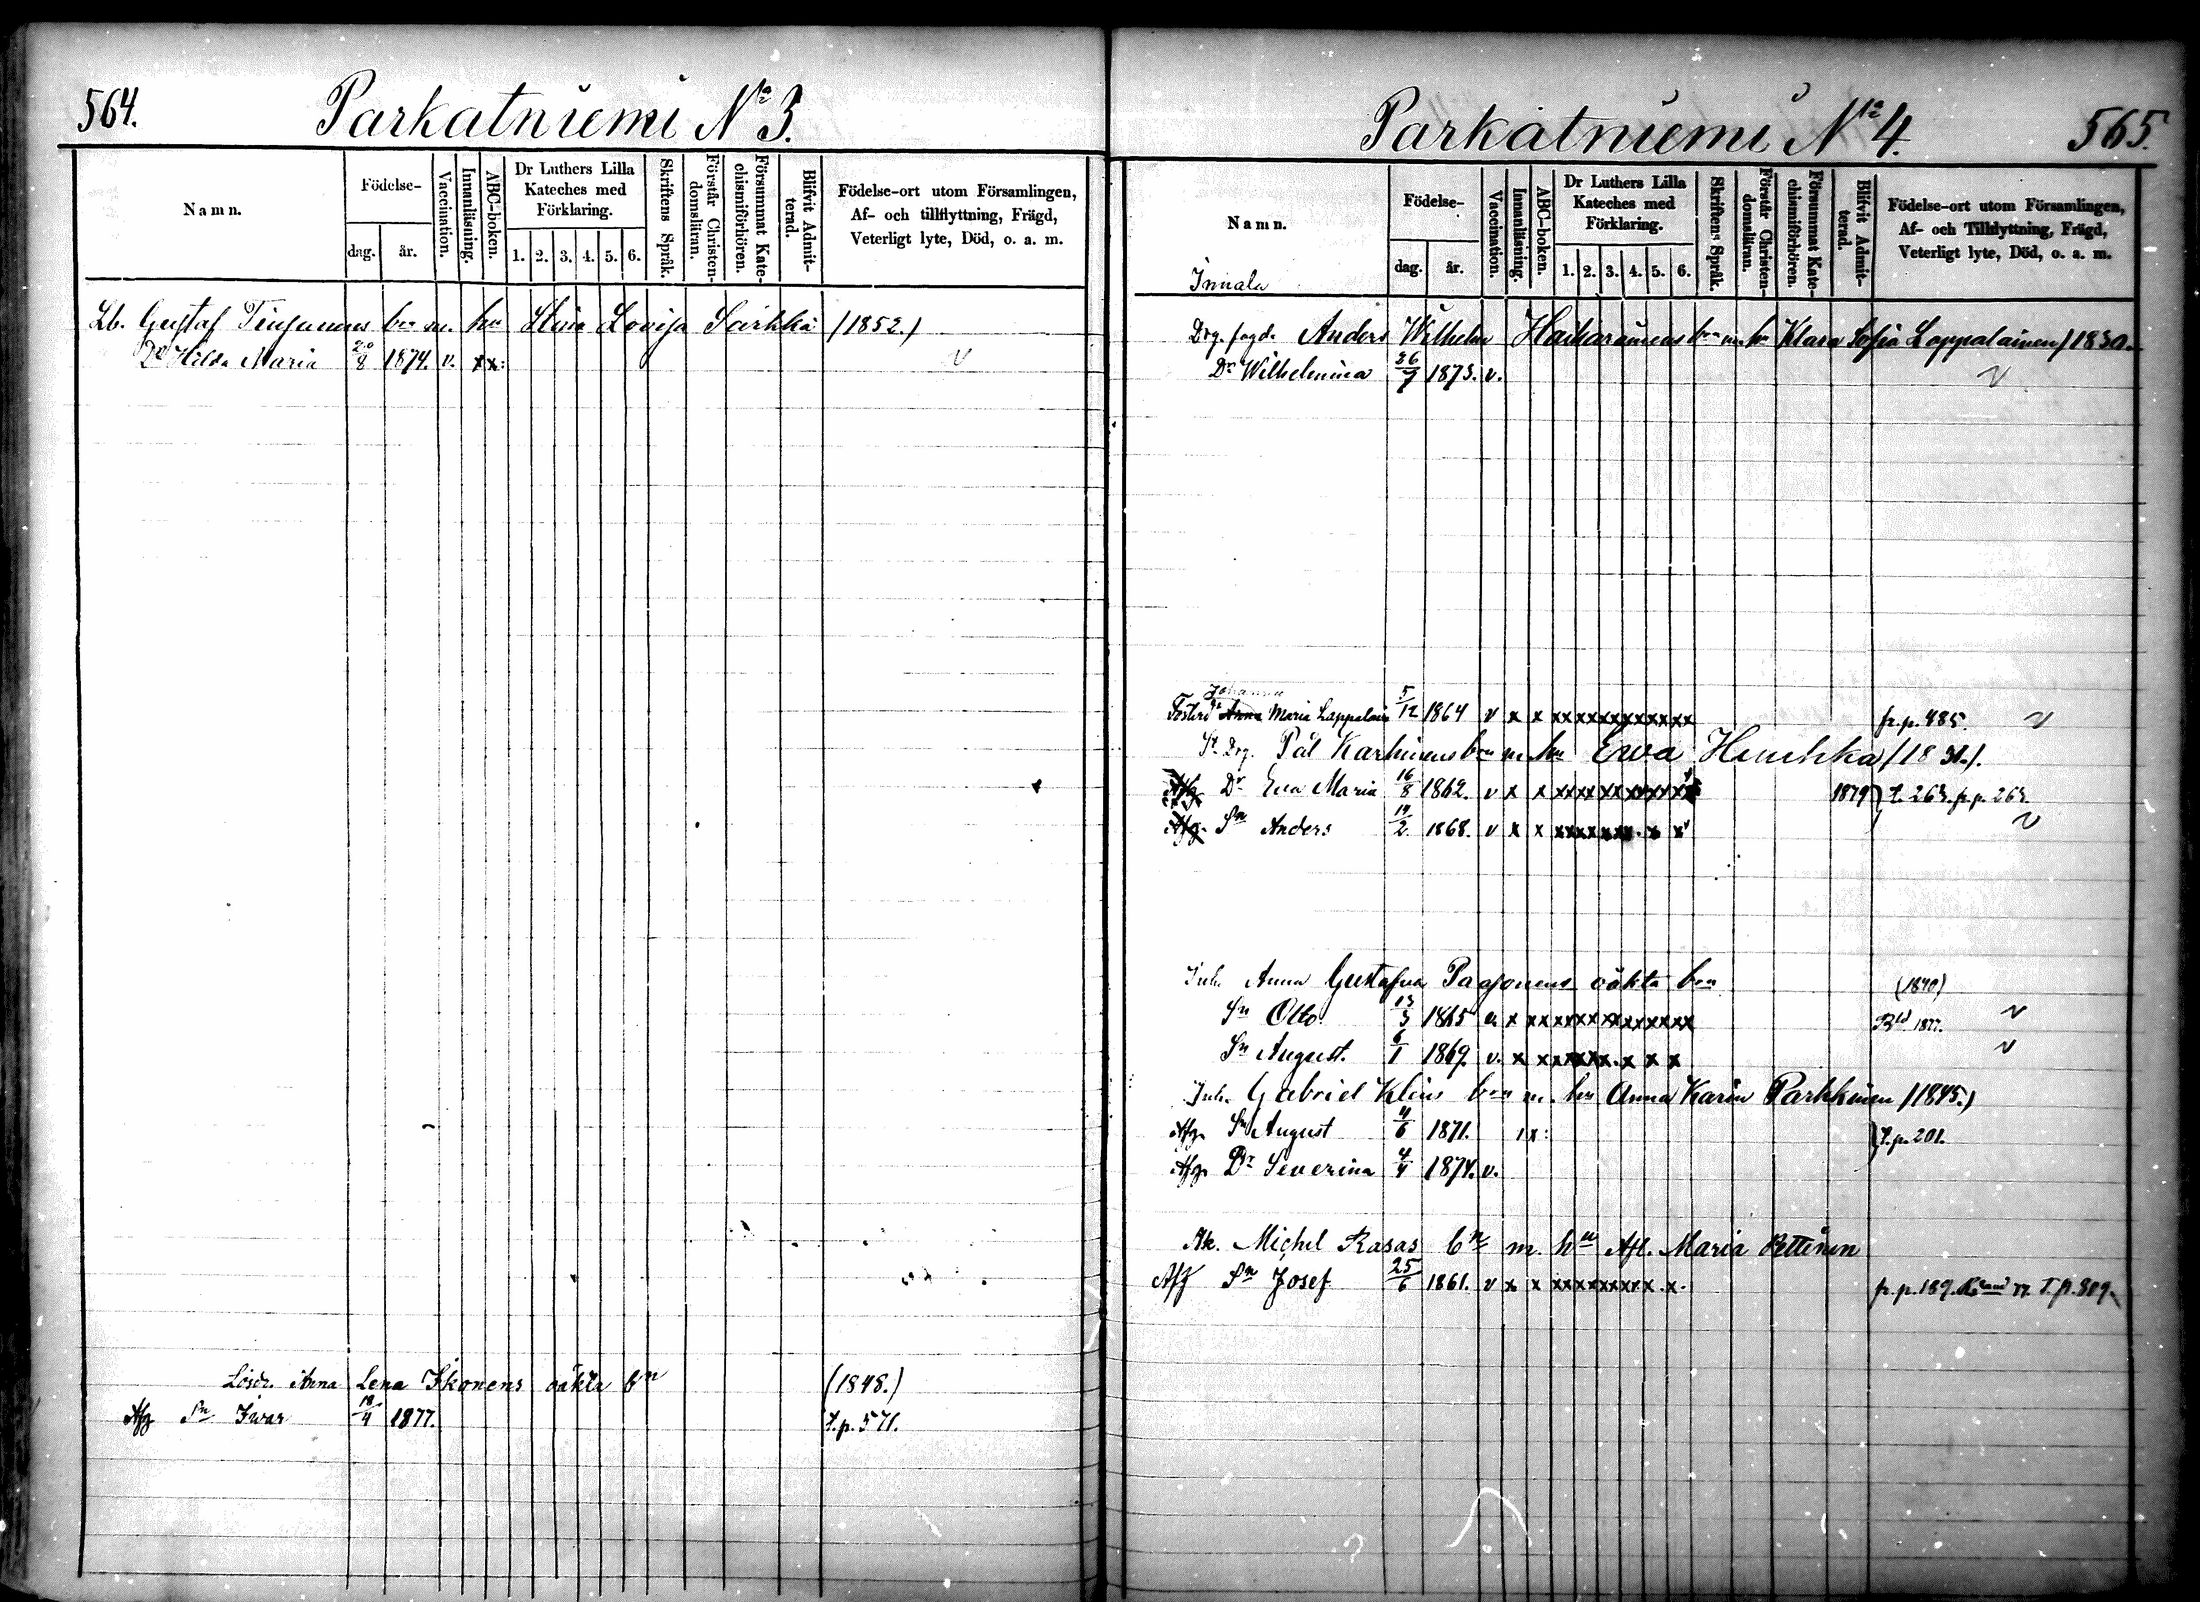 564.
Parkatniemi No 3.
Namn.
Födelse-
dag.
år.
Vaccination.
Innanläsning.
ABC-boken.
Dr Luthers Lilla Kateches med Förklaring.
1. 2. 3. 4. 5. 6.
Skriftens Språk.
Förstår Christendomsläran.
Försummat Katechismiförhören.
Blifvit Admitterad.
Födelse-ort utom Församlingen,
Af- och tillflyttning, Frägd,
Veterligt lyte, Död, o. a. m.
Lb. Gustaf bn m. hu Stina Lovisa Särkkä (1852.)
Dr Hilda Maria 20/8 1874. v. x x:
Lösdr. Anna Lena Ikonens oäkta bn (1848.)
Afg Sn Iwar 18/4 1877. t.p. 571.
Parkatniemi No 4.
565.
Namn.
Födelse-
dag.
år.
Vaccination.
Innanläsning.
ABC-boken.
Dr Luthers Lilla Kateches med Förklaring.
1. 2. 3. 4. 5. 6.
Skriftens Språk.
Förstår Christendomsläran.
Försummat Katechismiförhören.
Blifvit Admitterad.
Födelse-ort utom Församlingen,
Af- och Tillflyttning, Frägd,
Veterligt lyte, Död, o. a. m.
Innala
Drg. fogd. Anders Wilhelm bn m. hu Klara Sofia Lappalainen /1830.
Dr Wilhelmina 26/7 1873. v.
Johanna
Fosterd. Anna Maria Lappalain 5/12 1864 v x x xxxxxxxxxxxx fr. p. 485.
St. Drg. Pål Karhinens bn m. hu Ewa Huuhka (1831.).
Afg Dr Eva Maria 16/8 1862. v x x xxxxxxxxxxxx 1879 t. 263. fr. p. 263.
Afg. Sn Anders 19/2 1868. v x x xxxxxxx. x x
Inh. Anna Gustafva Pasonens oäkta bn (1840)
Sn Otto 13/3 1865 x xxxxxxxxxxxxxx 1877.
Sn August. 6/1 1869. v. x xxxxxx. x x x
Inh. Gabriel Klens bn m. hu Anna Karin Parkkinen (1845.)
Afg. Sn August 4/6 1871. x: t.p. 201.
Afg. Dr Severina 4/4 1874. v.
Ak. Michel Rasas bn m hu Afl. Maria Pettinen
Afg Sn Josef 25/6 1861. v x x xxxxxxxx. x. fr. p. 189. T. p. 809.